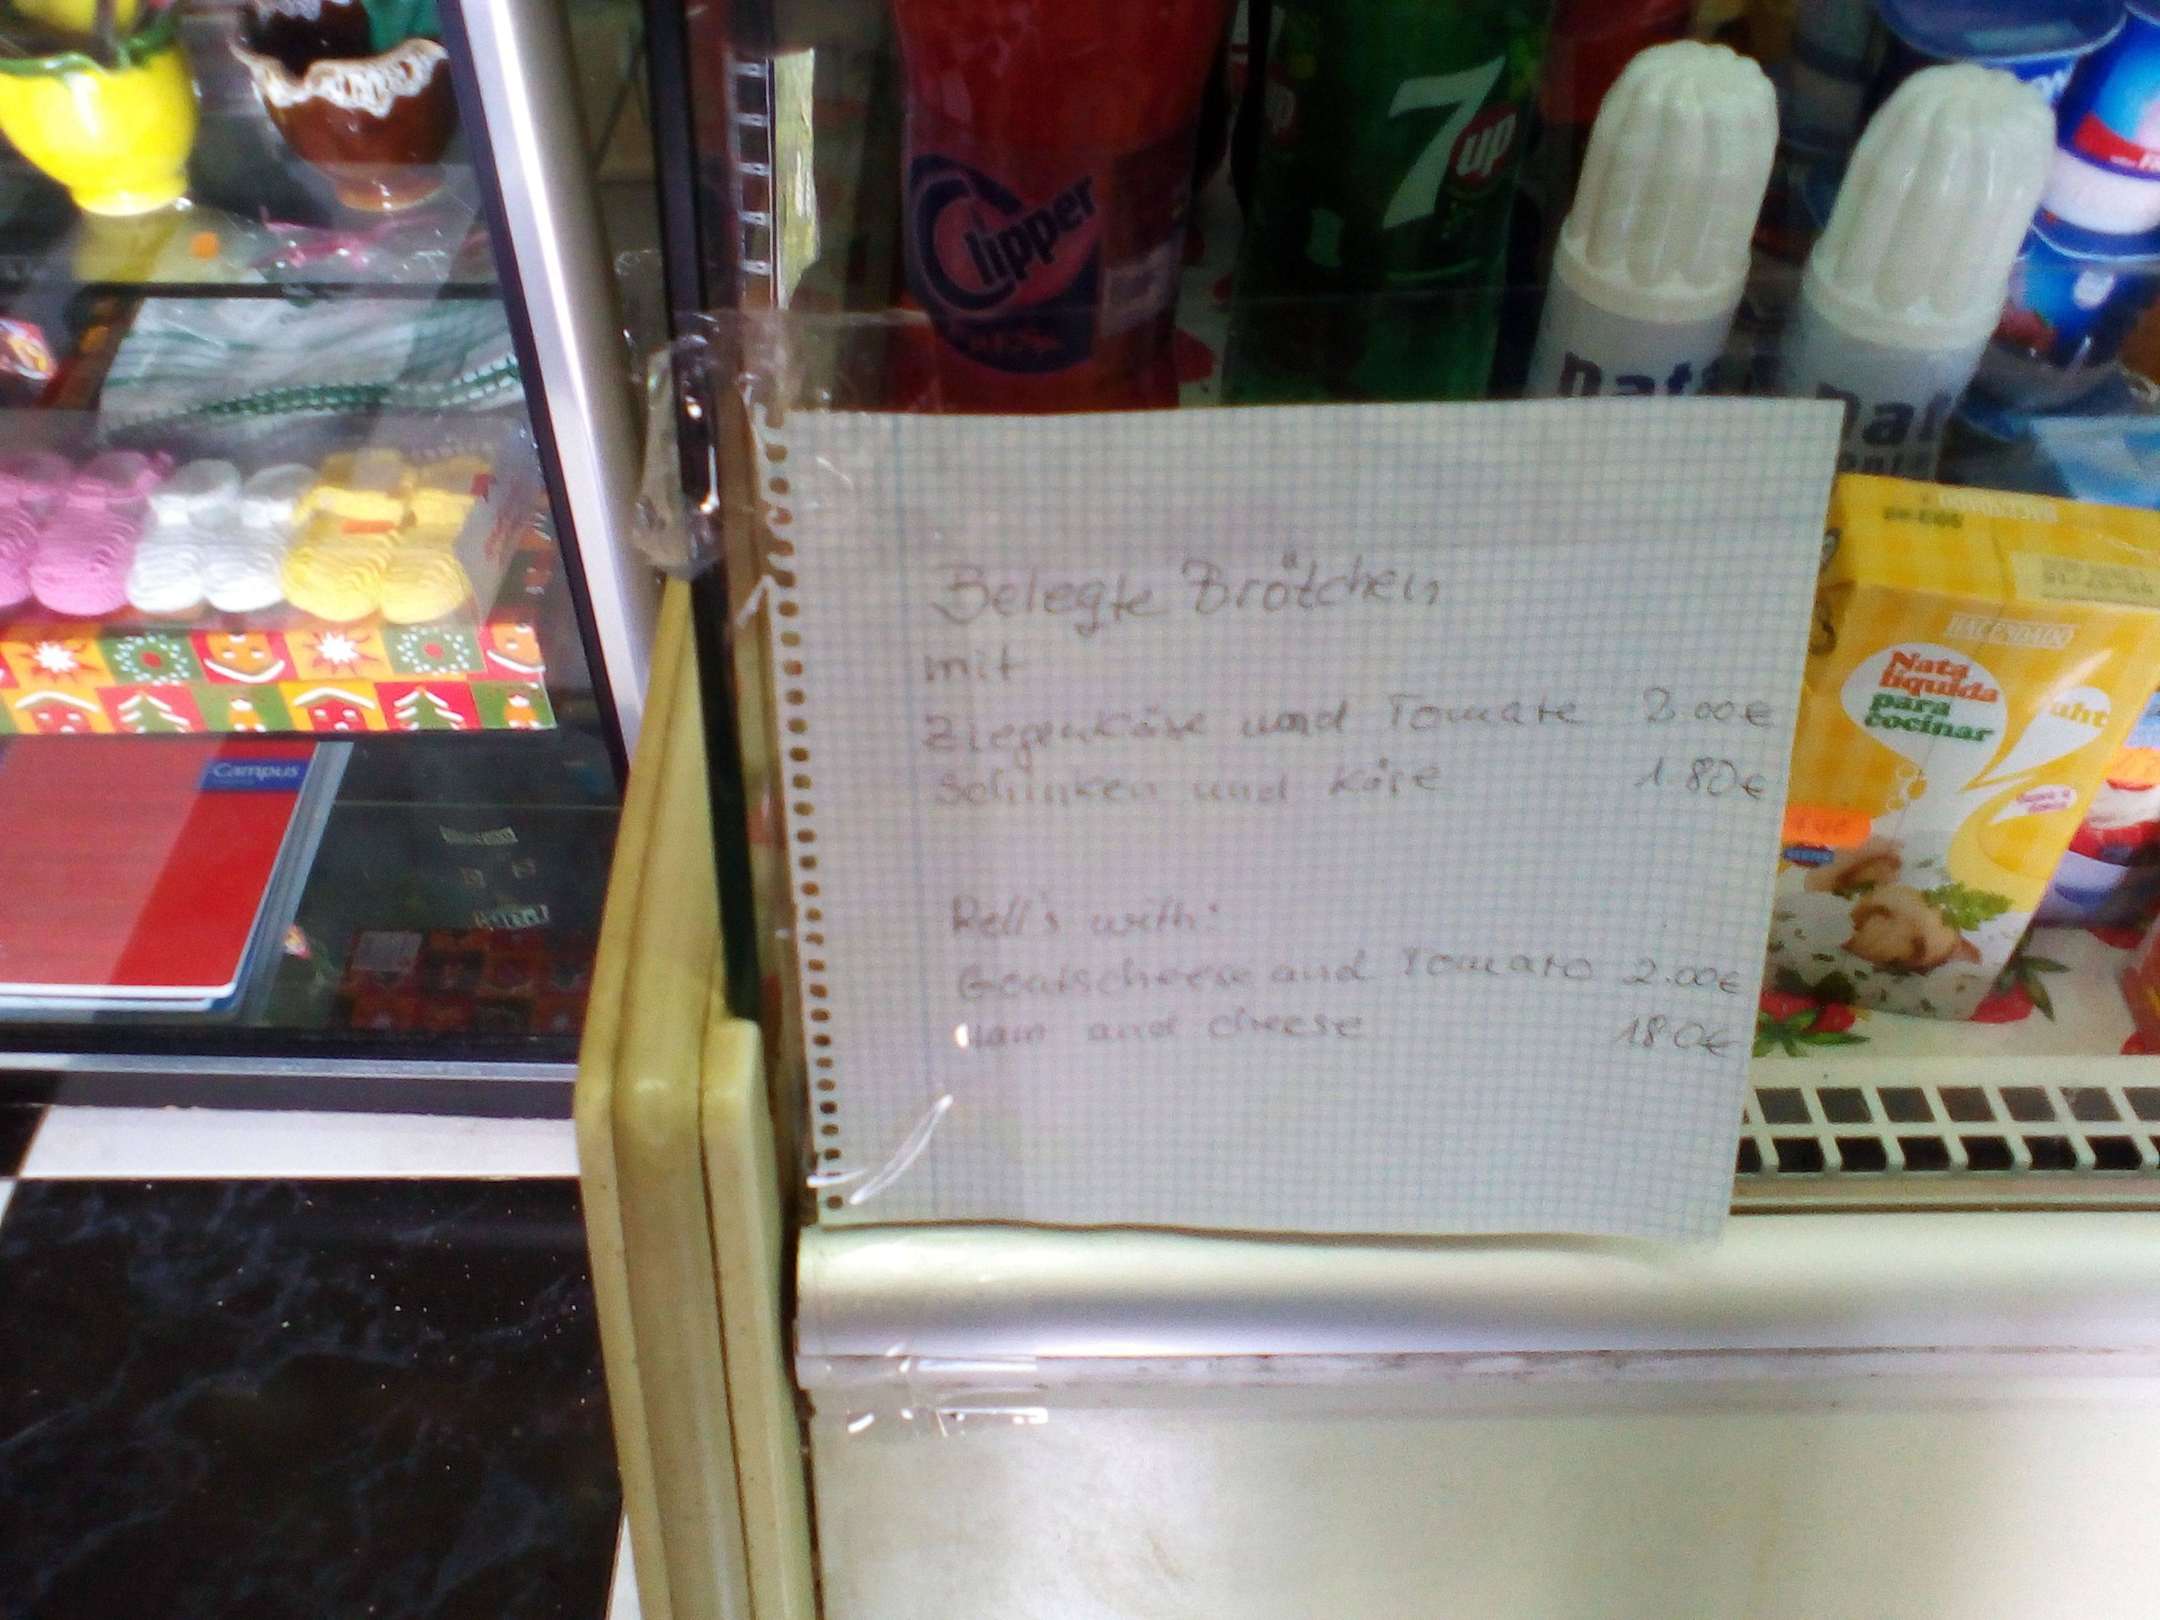 Clipper
7up
nata
nata
Belegte Brötchen
mit
Ziegenkäse und Tomate 2.00€
Schinken und Käse 1.80€
Rell's with:
Goatscheese and Tomato 2.00€
Ham and cheese 1.80€
HACENDADO
Nata
líquida
para
cocinar
uht
Campus